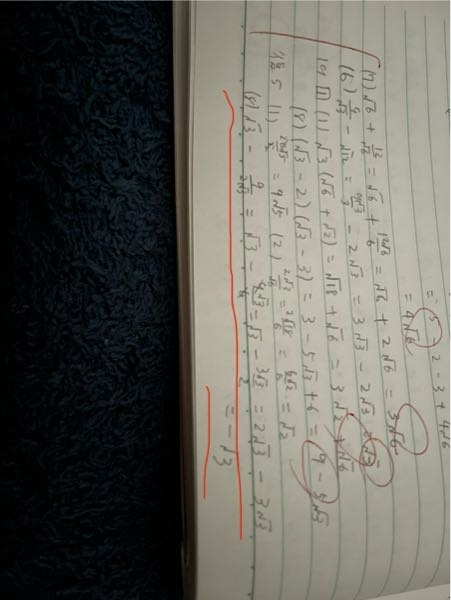 = 5 2 - 3 + 4√6
= 4√6
(7) √6 + 12/√6 = √6 + 12√6/6 = √6 + 2√6 = 3√6
(6) 9/√3 - √12 = 9√3/3 - 2√3 = 3√3 - 2√3 = √3
101 1 (1) √3 (√6 + √2) = √18 + √6 = 3√2 + √6
(8) (√3 - 2) (√3 - 3) = 3 - 5√3 + 6 = 9 - 5√3
5 (1) 20√5 = 4√5 (2) 2√3/√6 = 2√18/6 = 6√2/6 = √2
(8) √3 - 9/2√3 = √3 - = √3 - 3√3/2 = 2√3 - 3√3
= -√3